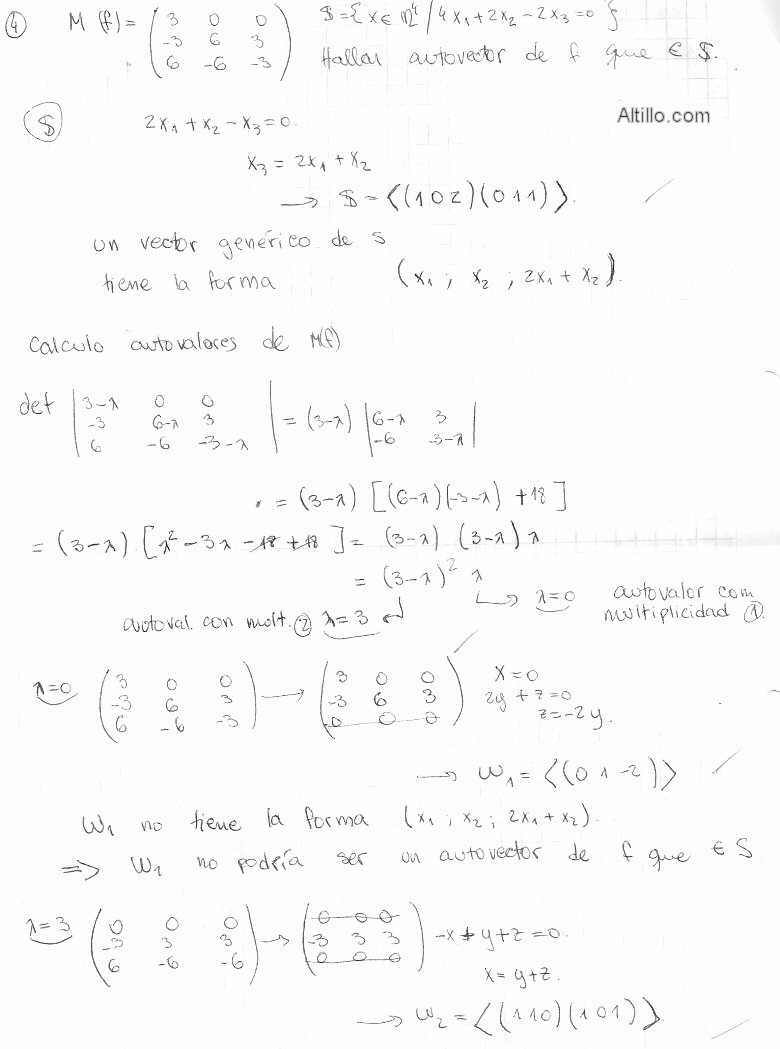 ④ M(f) = ( 3 0 0 $ = {x ∈ R⁴ / 4x₁ + 2x₂ - 2x₃ = 0 }
-3 6 3 Hallar autovector de f que ∈ $.
6 -6 -3 )
Altillo.com
$ 2x₁ + x₂ - x₃ = 0.
x₃ = 2x₁ + x₂
→ $ = <(1 0 2)(0 1 1)>.
un vector genérico de S
tiene la forma (x₁ ; x₂ ; 2x₁ + x₂).
Calculo autovalores de M(f)
det | 3-λ 0 0
-3 6-λ 3 | = (3-λ) | 6-λ 3
6 -6 -3-λ -6 -3-λ |
= (3-λ) [(6-λ)(-3-λ) + 18]
= (3-λ) [λ² - 3λ - 18 + 18] = (3-λ) (3-λ) λ
= (3-λ)² λ
↳ λ=0 autovalor com multiplicidad ①.
autoval. con mult. ② λ=3 ↲
λ=0 ( 3 0 0 → ( 3 0 0 x = 0
-3 6 3 -3 6 3 2y + z = 0
6 -6 -3 ) 0 0 0 ) z = -2y.
→ W₁ = <(0 1 -2)>
W₁ no tiene la forma (x₁ ; x₂ ; 2x₁ + x₂).
⇒ W₁ no podría ser un autovector de f que ∈ S
λ=3 ( 0 0 0 → ( 0 0 0
-3 3 3 -3 3 3 -x + y + z = 0.
6 -6 -6 ) 0 0 0 ) x = y + z.
→ W₂ = <(1 1 0)(1 0 1)>